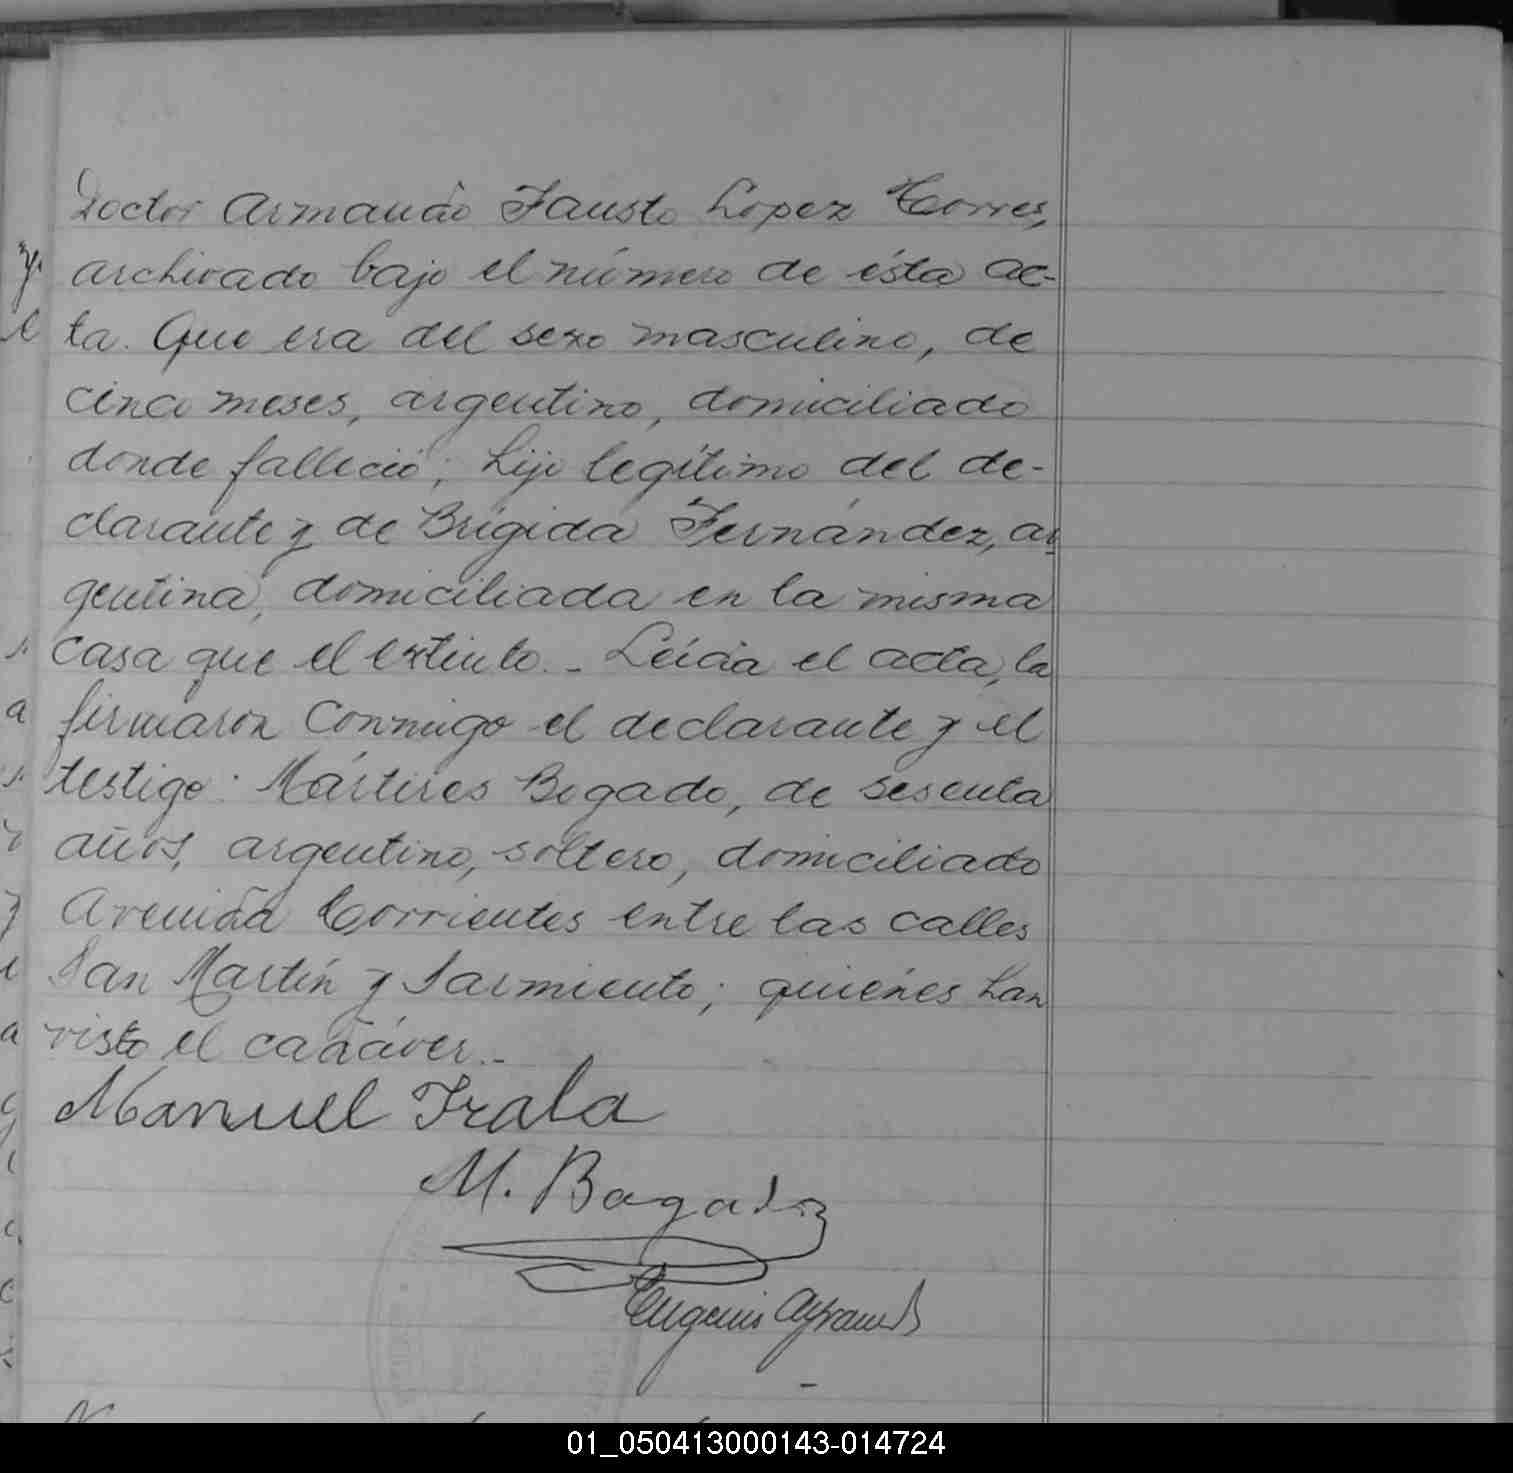 Doctor Armando Fausto Lopez Torres,
archivado bajo el número de ésta ac-
ta. Que era del sexo masculino, de
cinco meses, argentino, domiciliado
donde falleció; hijo legítimo del de-
clarante y de Brígida Fernández, ar
gentina, domiciliada en la misma
casa que el extinto._ Leída el acta, la
firmaron conmigo el declarante y el
testigo: Mártires Bogado, de sesenta
años, argentino, soltero, domiciliado
Avenida Corrientes entre las calles
San Martín y Sarmiento; quiénes han
visto el cadáver._
Manuel Irala
M. Bogado
Eugenio
01_050413000143-014724